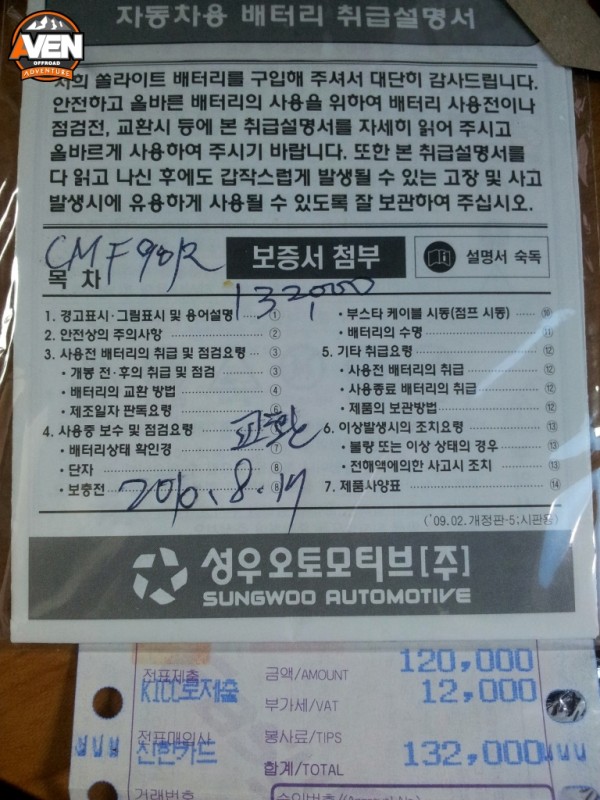 AVEN
OFFROAD
ADVENTURE
자동차용 배터리 취급설명서
저희 쏠라이트 배터리를 구입해 주셔서 대단히 감사드립니다.
안전하고 올바른 배터리의 사용을 위하여 배터리 사용전이나
점검전, 교환시 등에 본 취급설명서를 자세히 읽어 주시고
올바르게 사용하여 주시기 바랍니다. 또한 본 취급설명서를
다 읽고 나신 후에도 갑작스럽게 발생될 수 있는 고장 및 사고
발생시에 유용하게 사용될 수 있도록 잘 보관하여 주십시오.
CMF90R
목 차
보증서 첨부
설명서 숙독
132,000
1. 경고표시·그림표시 및 용어설명 ①
2. 안전상의 주의사항 ②
3. 사용전 배터리의 취급 및 점검요령 ③
• 개봉 전·후의 취급 및 점검 ③
• 배터리의 교환 방법 ④
• 제조일자 판독요령 ⑥
4. 사용중 보수 및 점검요령
• 배터리상태 확인경 ⑦
• 단자 ⑧
• 보충전 ⑧
• 부스타 케이블 시동(점프 시동) ⑩
• 배터리의 수명 ⑪
5. 기타 취급요령 ⑫
• 사용전 배터리의 취급 ⑫
• 사용종료 배터리의 취급 ⑫
• 제품의 보관방법 ⑫
6. 이상발생시의 조치요령 ⑬
• 불량 또는 이상 상태의 경우 ⑬
• 전해액에의한 사고시 조치 ⑬
7. 제품사양표 ⑭
교환
2010. 8. 17
('09.02.개정판-5:시판용)
성우오토모티브[주]
SUNGWOO AUTOMOTIVE
전표제출
KICC로제출
전표매입사
신한카드
금액/AMOUNT 120,000
부가세/VAT 12,000
봉사료/TIPS
합계/TOTAL 132,000
거래번호